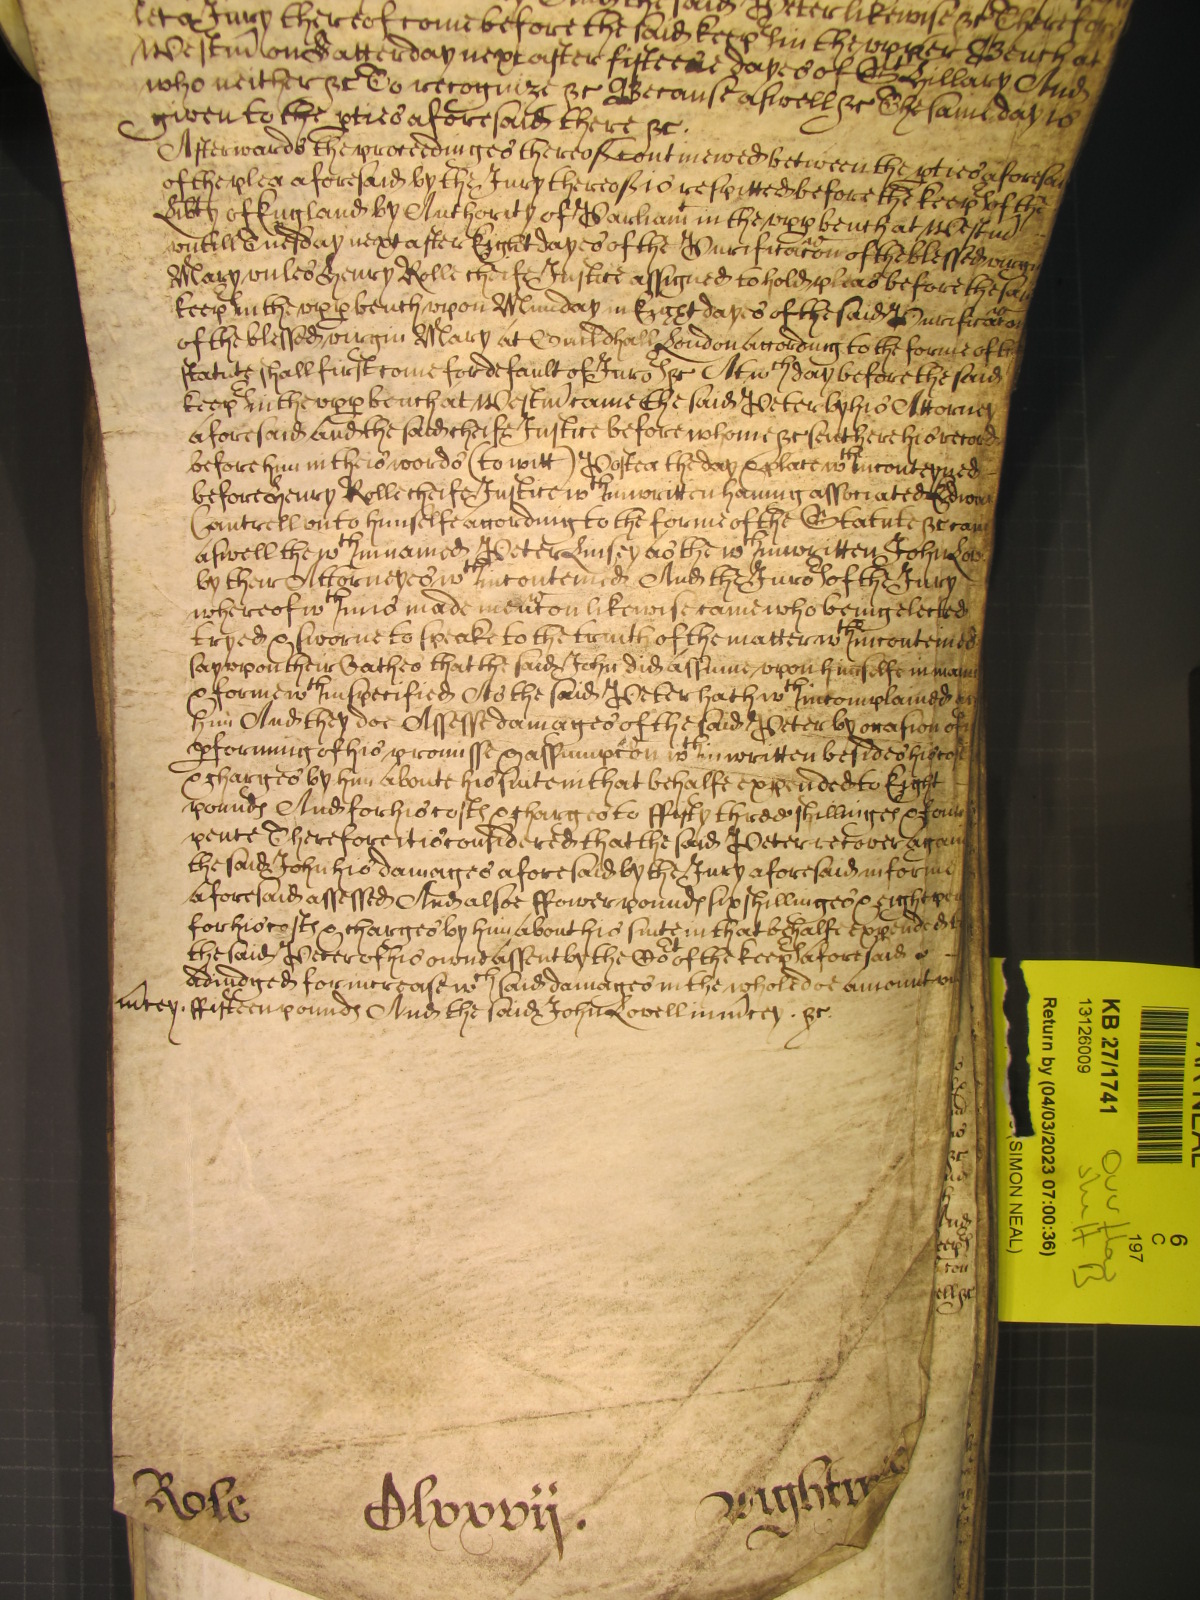 the said Peter likewise &c Therefore
let a Jury thereof come before the said keepˢ in the upper Bench at
Westm̃ on Satterday next after fifteene dayes of St Hillary And
who neither &c To recognize &c Because aswell &c The same day is
given to the p̲ties aforesaid there &c.
Afterwards the proceedinges thereof Continewed betweene the p̲ties aforesaid
of the plea aforesaid by the Jury thereof is respitted before the keepˢ of the
Lib̃ty of England by Authority of Parliamᵗ in the upp̲ bench at Westm̃
untill Tuesday next after Eight dayes of the Purificac̃on of the blessed virgin
Mary unles Henry Rolle cheife Justice assigned to hold pleas before the said
keepˢ in the upp̲ bench upon Munday in Eight dayes of the said Purificac̃on
of the blessed virgin Mary at Guildhall London according to the forme of the
statute shall first come for default of Juroˢ &c At wᶜʰ day before the said
keepˢ in the upp̲ bench at Westm̃ came the said Peter by his Attorney
aforesaid And the said cheife Justice before whome &c sent here his record
before him in theis words (to witt) Postea the day & place wᵗʰin conteyned
before Henry Rolle cheife Justice wᵗʰin written having associated
Cantrell unto himselfe according to the forme of the Statute &c came
aswell the wᵗʰin named Peter Linsey as the wᵗʰin written John
by their Attorneyes wᵗʰin conteined And the Juroˢ of the Jury
whereof wᵗʰin is made menc̃on likewise came who being elected
tryed & sworne to speake to the truith of the matter wᵗʰin conteined
say upon their Oathes that the said John did assume upon himselfe in mann
& forme wᵗʰin specified As the said Peter hath wᵗʰin complained
him And they doe Assesse damages of the said Peter by occasion of
p̲forming of his promisse & assumpc̃on wᵗʰin written besides his cost
& charges by him aboute his suite in that behalfe expended to Eight
pounds And for his costs & charges to ffifty three shillinges & four
pence Therefore it is considered that the said Peter recover again
the said John his damages aforesaid by the Jury aforesaid in forme
aforesaid assessed And alsoe ffower pounds six shillinges & eight pen
for his costs & charges by him about his suite in that behalfe expended to
the said Peter of his owne assent by the Coᵗ of the keepˢ aforesaid
adiudged for increase wᶜʰ said damages in the whole doe amount un
m̃cey. ffifteen pounds And the said John Lovell in m̃cey . &c.
Role Clxxxvij.
KB 27/1741
13126009
Return by (04/03/2023 07:00:36)
(SIMON NEAL)
6
C
197